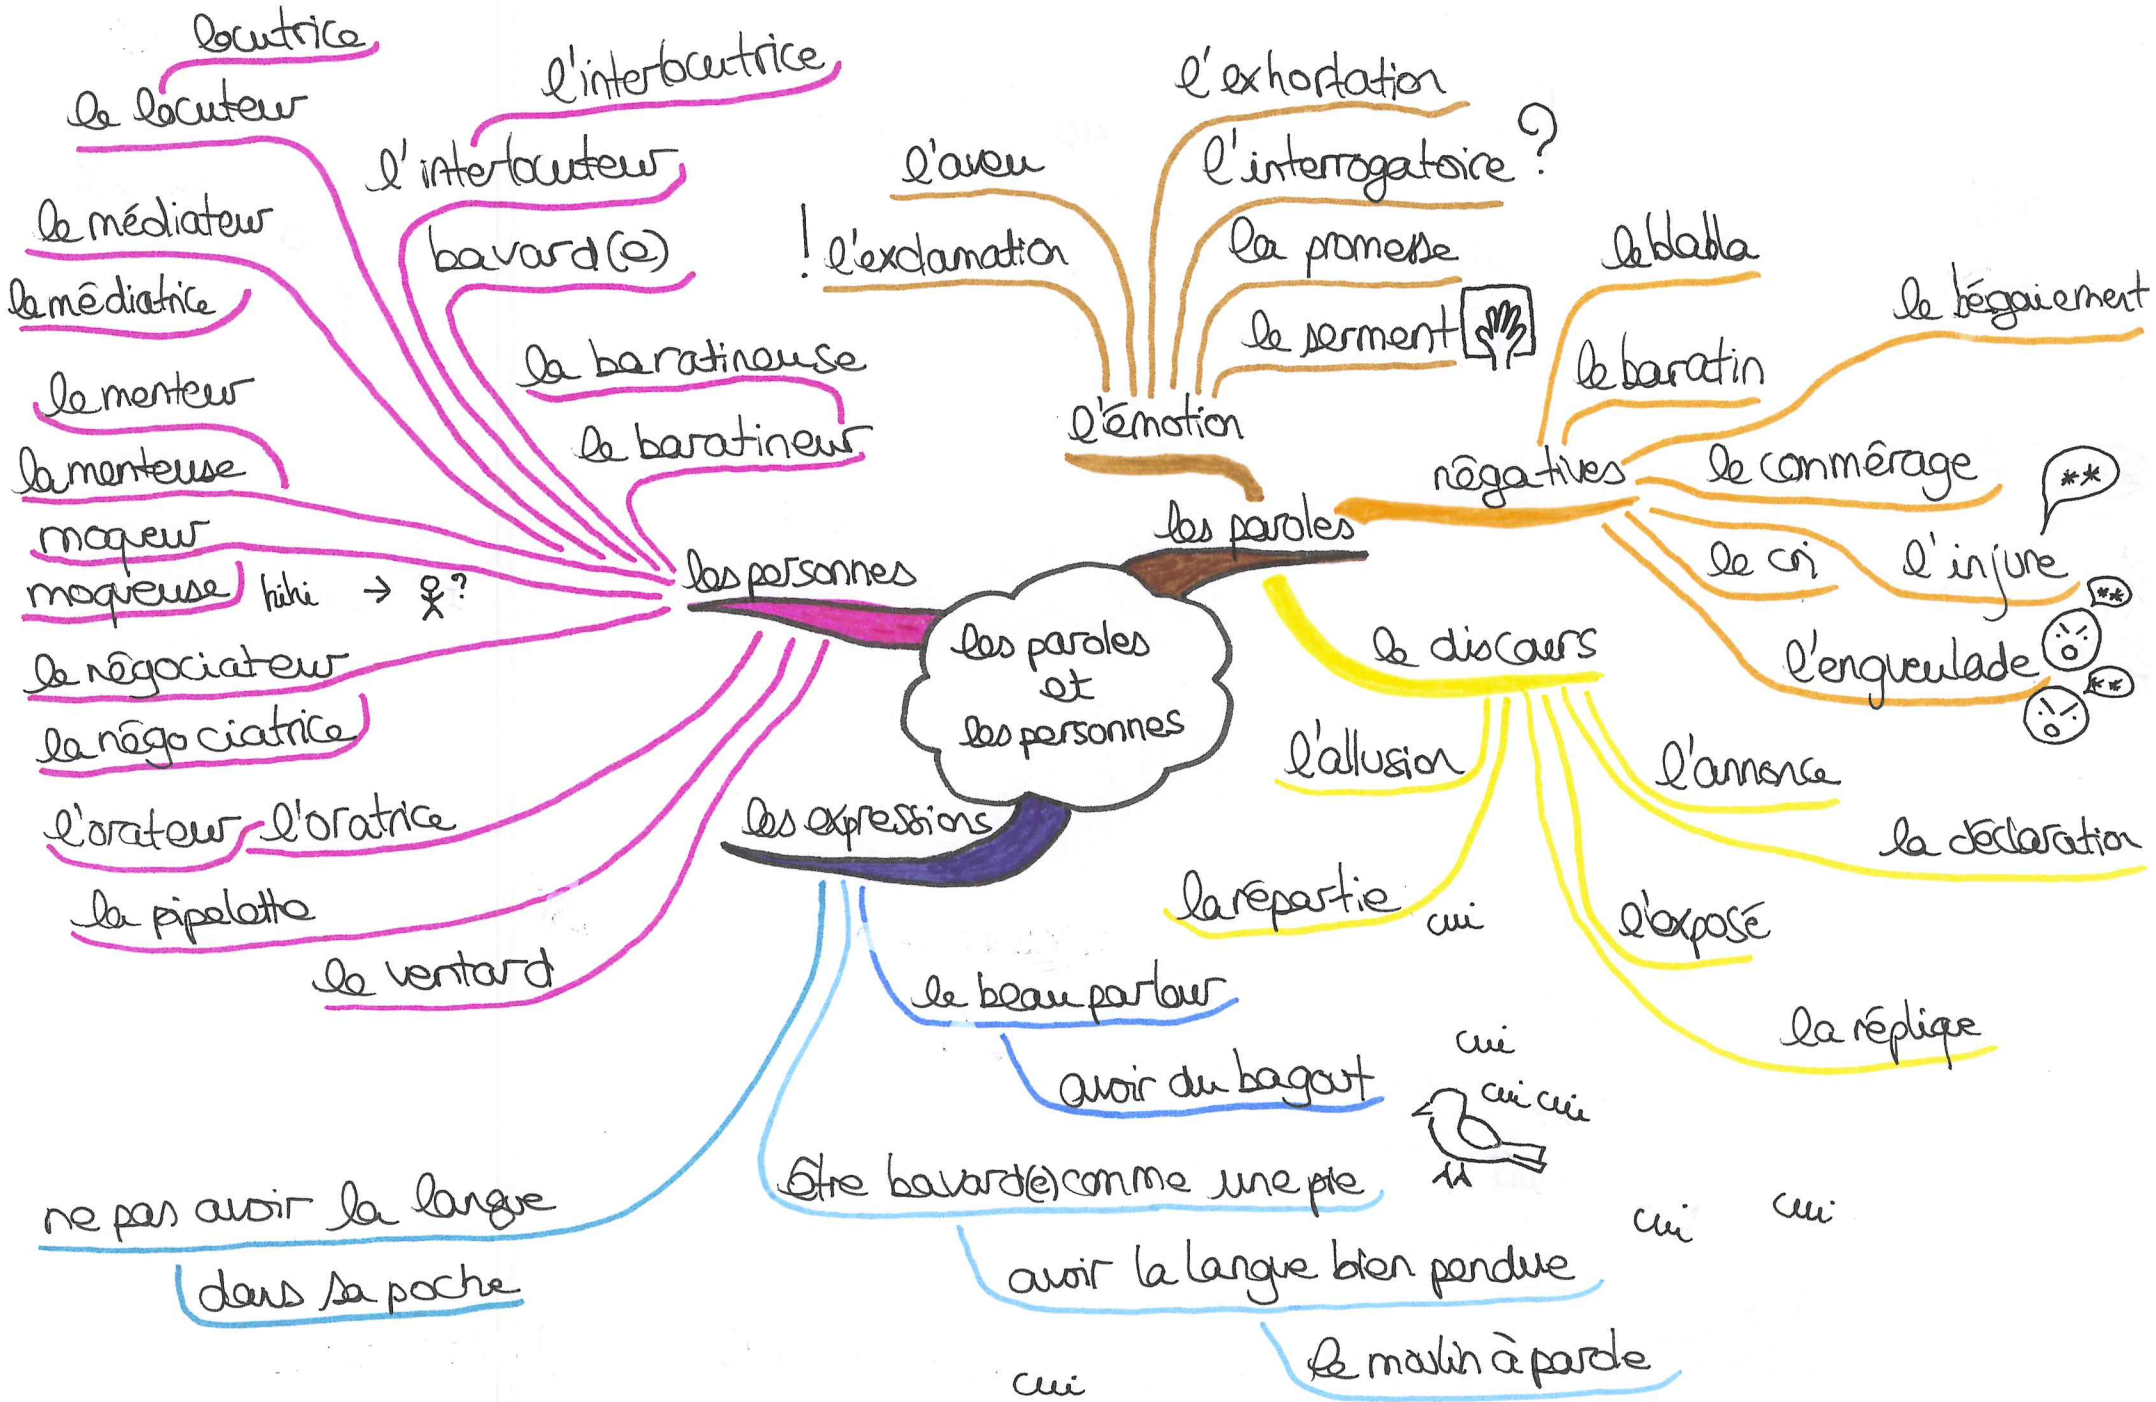 locutrice
le locuteur
l'interlocutrice
l'interlocuteur
le médiateur
la médiatrice
bavard(e)
la baratineuse
le baratineur
le menteur
la menteuse
moqueur
moqueuse
hihi
?
le négociateur
la négociatrice
l'orateur
l'oratrice
la pipelette
le ventard
les personnes
les paroles
et
les personnes
les paroles
l'émotion
l'exclamation
!
l'aveu
l'exhortation
l'interrogatoire ?
la promesse
le serment
négatives
le blabla
le baratin
le bégaiement
le commérage
le cri
l'injure
**
l'engueulade
**
**
le discours
l'allusion
la répartie
l'annonce
la déclaration
l'exposé
la réplique
les expressions
le beau parleur
avoir du bagout
être bavard(e) comme une pie
avoir la langue bien pendue
le moulin à parole
ne pas avoir la langue
dans sa poche
cui
cui
cui cui
cui
cui
cui